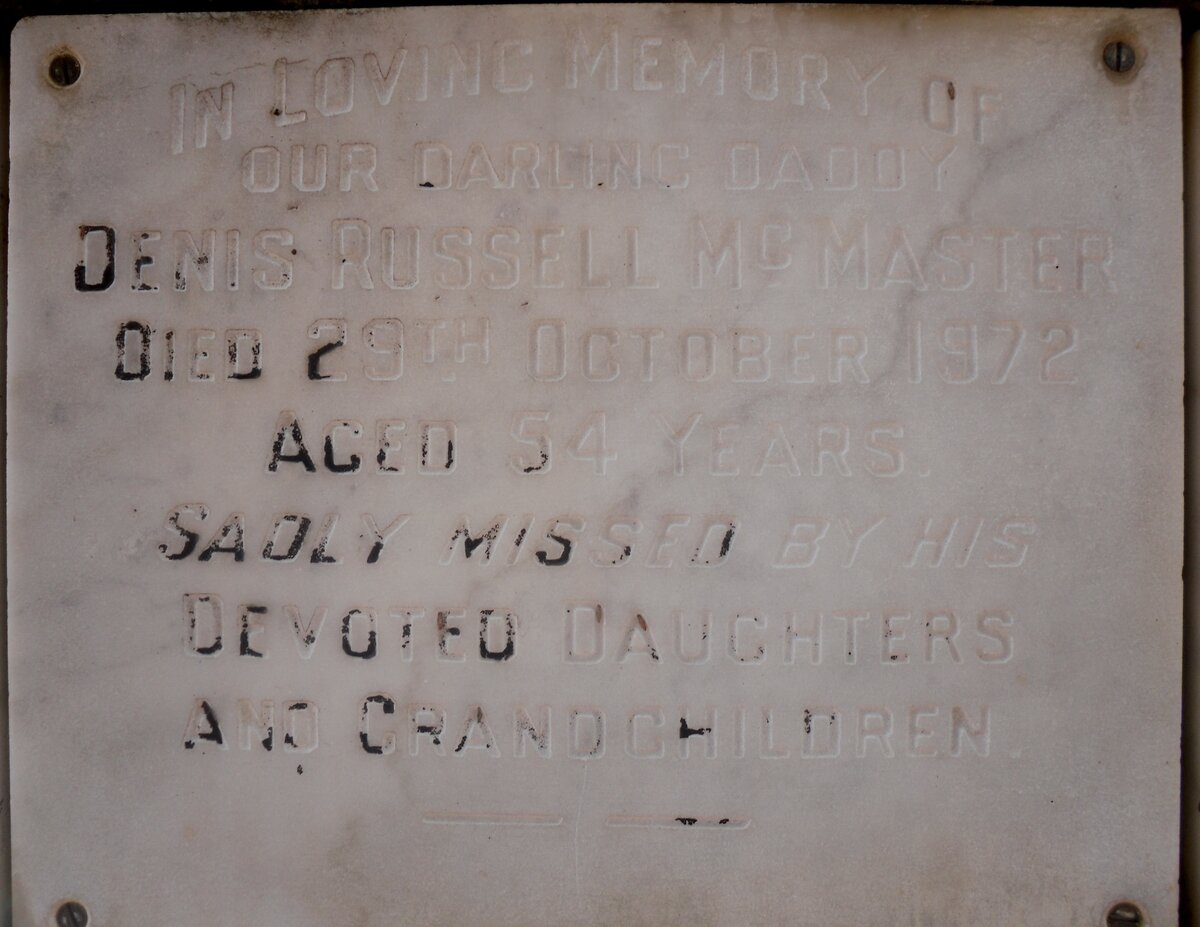 IN LOVING MEMORY OF
OUR DARLING DADDY
DENIS RUSSELL MCMASTER
DIED 29TH OCTOBER 1972
AGED 54 YEARS.
SADLY MISSED BY HIS
DEVOTED DAUGHTERS
AND GRANDCHILDREN.